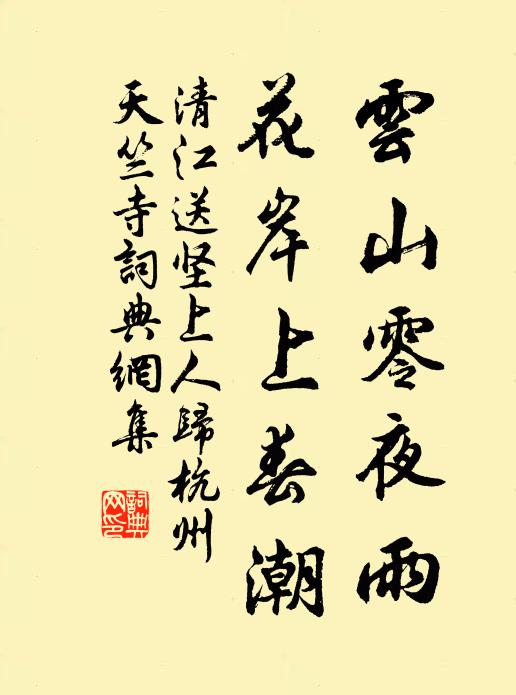 雲山零夜雨
花岸上春潮
清江送坚上人歸杭州
天竺寺詞典網集
詞典网印